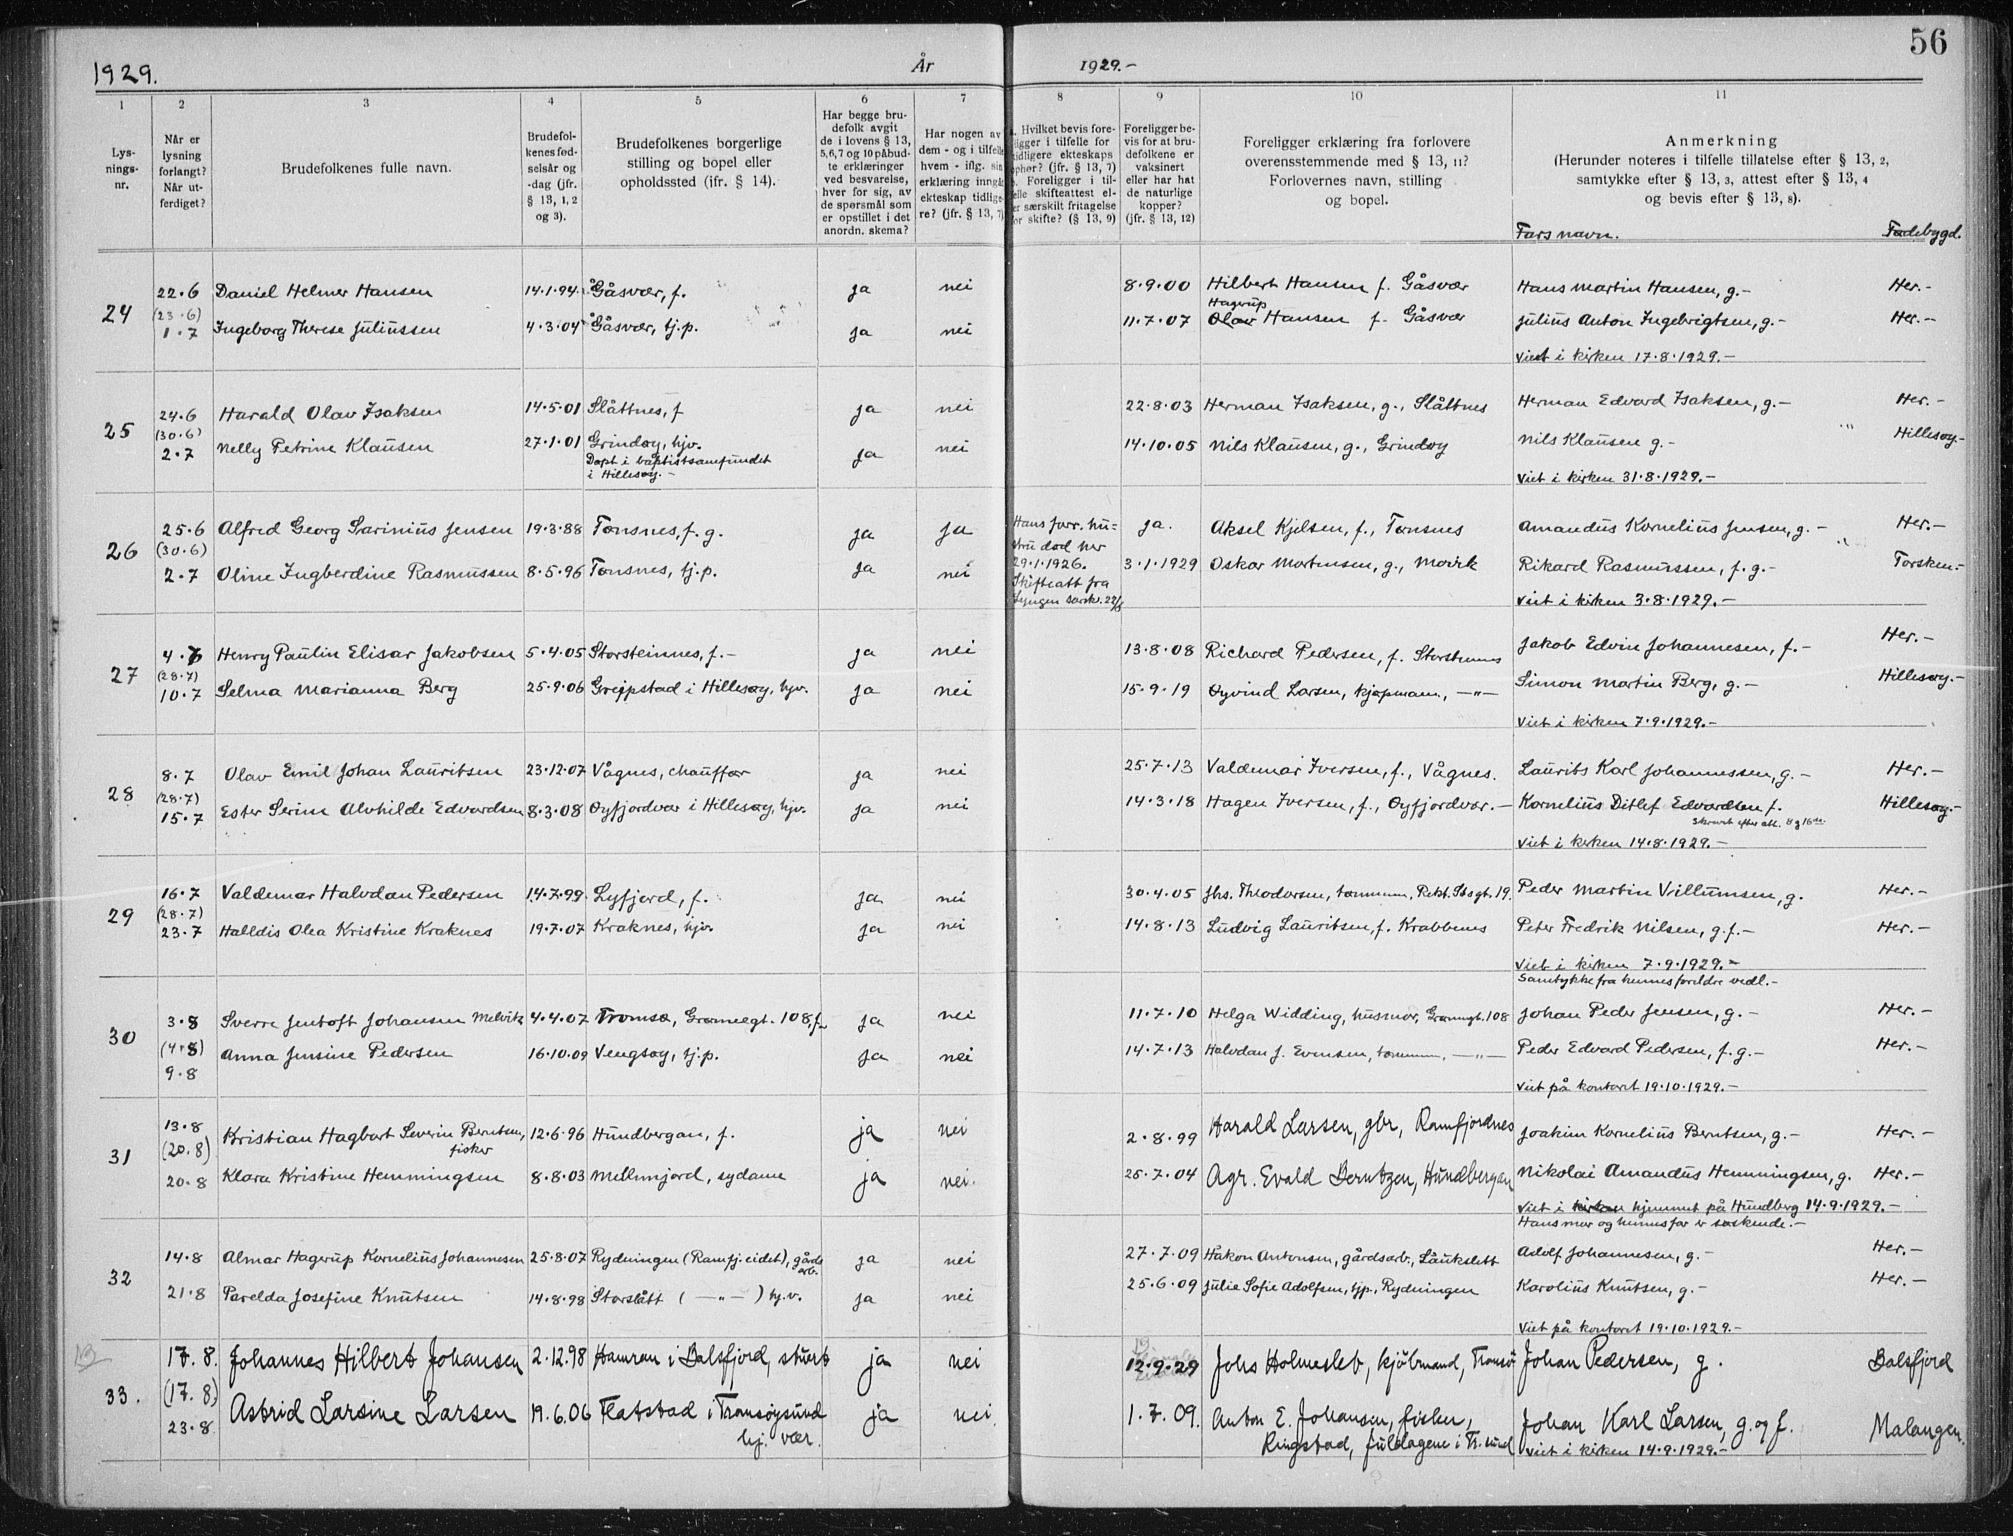 56
1929. År 1929.-
1 2 3 4 5 6 7 8 9 10 11
Lys-
nings-
nr.
Når er
lysning
forlangt?
Når ut-
ferdiget?
Brudefolkenes fulle navn.
Brudefol-
kenes fød-
selsår og
-dag (jfr.
§ 13, 1, 2
og 3).
Brudefolkenes borgerlige
stilling og bopel eller
opholdssted (ifr. § 14).
Har begge bru-
defolk avgit
de i lovens § 13,
5,6,7 og 10 påbud-
te erklæringer
ved besvarelse,
hver for sig, av
de spørsmål som
er opstillet i det
anordn. skema?
Har nogen av
dem - og i tilfelle
hvem - iflg. sin
erklæring inngåt
ekteskap tidlige-
re? (jfr. § 13, 7)
. Hvilket bevis fore-
ligger i tilfelle for
tidligere ekteskaps
ophør? (jfr. § 13, 7)
b. Foreligger i til-
felle skifteattest el-
er særskilt fritagelse
for skifte? (§ 13, 9)
Foreligger be-
vis for at bru-
defolkene er
vaksinert
eller har hat
de naturlige
kopper?
(jfr. § 13, 12)
Foreligger erklæring fra forlovere
overensstemmende med § 13, 11?
Forlovernes navn, stilling
og bopel.
Anmerkning
(Herunder noteres i tilfelle tillatelse efter § 13, 2,
samtykke efter § 13, 3, attest efter § 13, 4
og bevis efter § 13, 8).
Fars navn. Fødebygd.
24 22.6 Daniel Helmer Hansen 14.1.94. Gåsvær, f. ja nei 8.9.00 Hilbert Hansen f. Gåsvær Hans Martin Hansen, g.- Her.-
(23.6) Hagerup
1.7 Ingeborg Therese Juliussen 4.3.04 Gåsvær, tj.p. ja nei 11.7.07 Olav Hansen f. Gåsvær Julius Anton Ingebrigtsen, g.- Her.-
Viet i kirken 17.8.1929.-
25 24.6 Harald Olav Isaksen 14.5.01 Slåttnes, f ja nei 22.8.03 Herman Isaksen, g., Slåttnes Herman Edvard Isaksen, g.- Her.-
(30.6)
2.7 Nelly Petrine Klausen 27.1.01 Grindøy, hjv. ja nei 14.10.05 Nils Klausen, g., Grindøy Nils Klausen g.- Hillesøy.-
Døpt i baptistsamfundet
i Hillesøy.- Viet i kirken 31.8.1929.-
26 25.6 Alfred Georg Sarinius Jensen 19.3.88 Tønsnes, f.g. ja ja Hans forr. hu= ja. Aksel Kjelsen, f., Tønsnes Amandus Kornelius Jensen, g.- Her.-
(30.6) stru død her
2.7 Oline Ingberdine Rasmussen 8.5.96 Tønsnes, tj.p. ja nei 29.1.1926. 3.1.1929 Oskar Mortensen, g., Movik Rikard Rasmussen, f.g.- Torsken.-
Skifteatt fra
Lyngen sorskr. 22/6 Viet i kirken 3.8.1929.-
27 4.7 Henry Paulin Elisar Jakobsen 5.4.05 Storsteinnes, f.- ja nei 13.8.08 Richard Pedersen, f. Storsteinnes Jakob Edvin Johannesen, f.- Her.-
(28.7)
10.7 Selma Marianna Berg 25.9.06 Greipstad i Hillesøy, hjv. ja nei 15.9.19 Øyvind Larsen, kjøpmann, —"— Simon Martin Berg, g.- Hillesøy.-
Viet i kirken 7.9.1929.-
28 8.7 Olav Emil Johan Lauritsen 23.12.07 Vågnes, chauffør ja nei 25.7.13 Valdemar Iversen, f., Vågnes. Laurits Karl Johannessen, g.- Her.-
(28.7)
15.7 Ester Serine Alvhilde Edvardsen 8.3.08 Øyfjordvær i Hillesøy, hjv. ja nei 14.3.18 Hagen Iversen, f., Øyfjordvær.- Kornelius Ditlef Edvardsen f. Hillesøy.-
Viet i kirken 14.8.1929.-
29 16.7 Valdemar Halvdan Pedersen 14.7.99. Lyfjord, f. ja nei 30.4.05 Jhs. Theodorsen, tømmerm, Rekt. Stsgt. 19. Peder Martin Villumsen, g. Her.-
(28.7)
23.7 Halldis Olea Kristine Kraknes 19.7.07 Kraknes, hjv. ja nei 14.8.13 Ludvig Lauritsen, f. Krabbenes Peter Fredrik Nilsen, g.f.- Her.-
Viet i kirken 7.9.1929.-
Samtykke fra hennes foreldre vedl.-
30 3.8 Sverre Jentoft Johansen Melvik 4.4.07 Tromsø, Grønnegt. 108, f. ja nei 11.7.10 Helga Widding, husmor, Grønnegt. 108 Johan Peder Jensen, g.- Her.-
(4.8) Anna Jensine Pedersen 16.10.09 Vengsøy, tj.p. ja nei 14.7.13 Halvdan J. Evensen, tømmerm, —"— Peder Edvard Pedersen, f.g.- Her.-
9.8 Viet på kontoret 19.10.1929.-
31 13.8 Kristian Hagbart Severin Berntsen, 12.6.96 Hundbergan, f. ja nei 2.8.99 Harald Larsen, gbr, Ramfjordnes Joakim Kornelius Berntsen, g.- Her.-
(20.8) fisker
20.8 Klara Kristine Hemmingsen 8.8.03 Mellemjord, sydame ja nei. 25.7.04 Agr. Evald Berntzen, Hundbergan Nikolai Amandus Hemmingsen, g. Her.-
Viet i kirken hjemmet på Hundberg 14.9.1929.-
Hans mor og hennes far er søskende.-
32 14.8 Almar Hagerup Kornelius Johannesen 25.8.07 Rydningen (Ramfj. eidet), gårds ja nei 27.7.09 Håkon Antonsen, gårdsarb., Laukslett Adolf Johannesen, g.- Her.-
arb.
21.8 Parelda Josefine Knutsen 14.8.98 Storslått (—"—) hj.v. ja nei 25.6.09 Julie Sofie Adolfsen, tjp., Rydningen Karolius Knutsen, g.- Her.-
Viet på kontoret 19.10.1929.-
33. 17.8. Johannes Hilbert Johansen 2.12.98 Hamran i Balsfjord, stuert ja nei 12.9.29 Johs Holmeslet, kjöbmand, Tromsö Johan Pedersen, g. Balsfjord
(17.8)
23.8 Astrid Larsine Larsen 19.6.06 Flatstad i Tromsøysund ja nei. 1.7.09. Anton E. Johansen, fisker, Johan Karl Larsen, g. og f. Malangen.
hj. vær. Ringstad, i Tr.sund Viet i kirken 14.9.1929.-